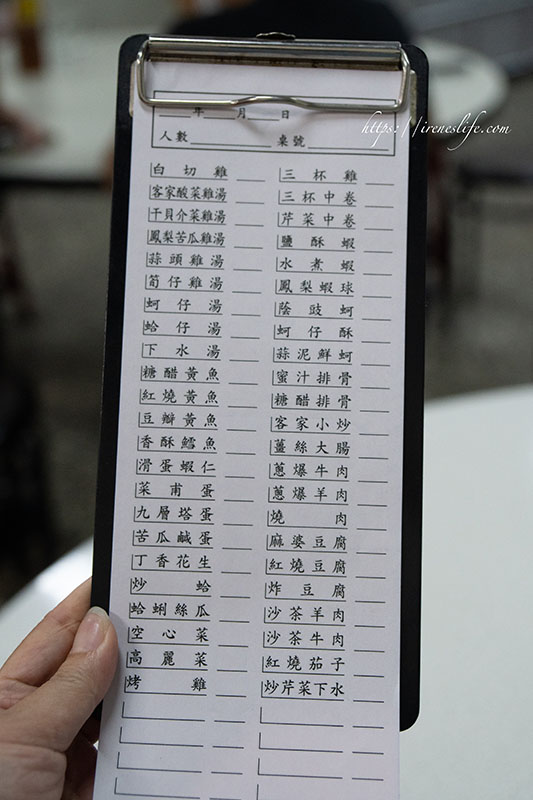 年 月 日
https://ireneslife.com
人數 桌號
白切雞
客家酸菜雞湯
干貝介菜雞湯
鳳梨苦瓜雞湯
蒜頭雞湯
筍仔雞湯
蚵仔湯
蛤仔湯
下水湯
糖醋黃魚
紅燒黃魚
豆瓣黃魚
香酥鱈魚
滑蛋蝦仁
菜甫蛋
九層塔蛋
苦瓜鹹蛋
丁香花生
炒蛤
蛤蜊絲瓜
空心菜
高麗菜
烤雞
三杯雞
三杯中卷
芹菜中卷
鹽酥蝦
水煮蝦
鳳梨蝦球
蔭豉蚵
蚵仔酥
蒜泥鮮蚵
蜜汁排骨
糖醋排骨
客家小炒
薑絲大腸
蔥爆牛肉
蔥爆羊肉
燒肉
麻婆豆腐
紅燒豆腐
炸豆腐
沙茶羊肉
沙茶牛肉
紅燒茄子
炒芹菜下水